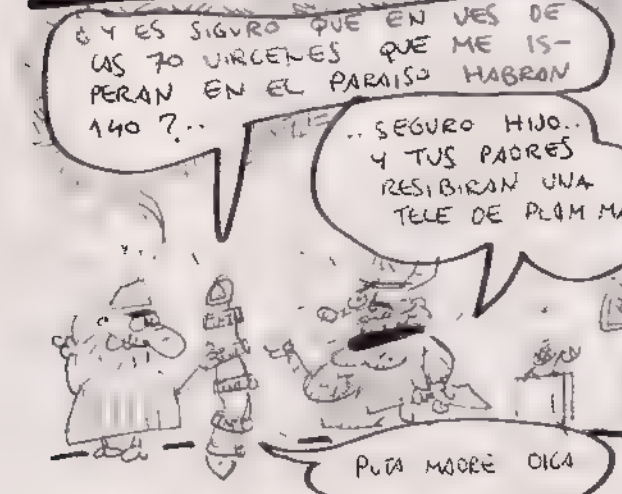 ¿Y ES SIGURO QUE EN VES DE
LAS 70 VIRGENES QUE ME IS-
PERAN EN EL PARAISO HABRAN
140 ?..
.. SEGURO HIJO..
Y TUS PADRES
RESIBIRAN UNA
TELE DE PLAMMA
PUTA MADRE OIGA